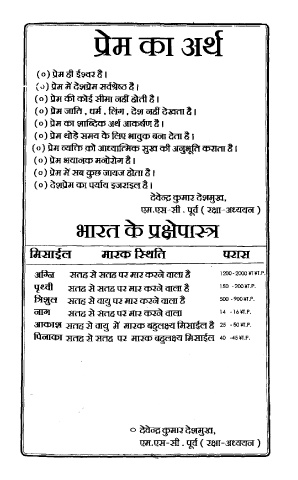 प्रेम का अर्थ
(०) प्रेम ही ईश्वर है।
(०) प्रेम में देशप्रेम सर्वश्रेष्ठ है।
(०) प्रेम की कोई सीमा नहीं होती है।
(०) प्रेम जाति, धर्म, लिंग, देश नहीं देखता है।
(०) प्रेम का शाब्दिक अर्थ आकर्षण है।
(०) प्रेम थोड़े समय के लिए भावुक बना देता है।
(०) प्रेम व्यक्ति को आध्यात्मिक सुख की अनुभूति कराता है।
(०) प्रेम भयानक मनोरोग है।
(०) प्रेम में सब कुछ जायज होता है।
(०) देशप्रेम का पर्याय इजराइल है।
देवेन्द्र कुमार देशमुख,
एम.एस-सी. पूर्व (रक्षा-अध्ययन)
भारत के प्रक्षेपास्त्र
मिसाईल मारक स्थिति परास
अग्नि सतह से सतह पर मार करने वाला है 1200-2000 कि.मी.
पृथ्वी सतह से सतह पर मार करने वाला है 150-200 कि.मी.
त्रिशुल सतह से वायु पर मार करने वाला है 500-900 कि.मी.
नाग सतह से सतह पर मार करने वाला 14-16 कि.मी.
आकाश सतह से वायु में मारक बहुलक्ष्य मिसाईल है 25-50 कि.मी.
पिनाका सतह से सतह पर मारक बहुलक्ष्य मिसाईल 40-45 कि.मी.
० देवेन्द्र कुमार देशमुख,
एम.एस-सी. पूर्व (रक्षा-अध्ययन)